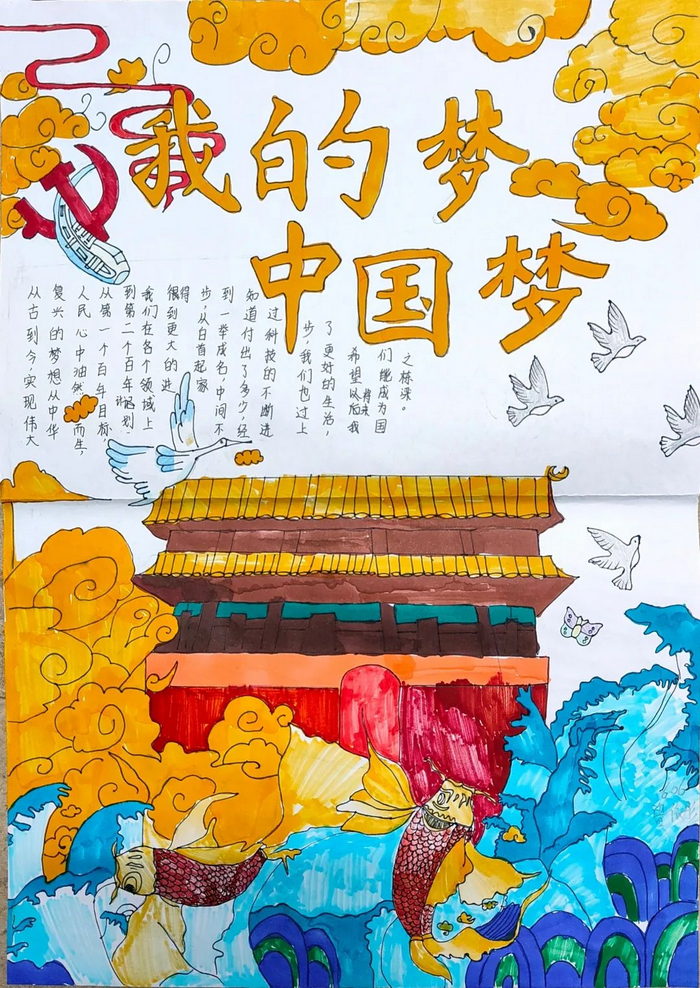 我的梦
中国梦
从古到今,实现伟大
复兴的梦想从中华
人民心中油然而生,
从第一个百年目标,
到第二个百年计划.
我们在各个领域上
很得到更大的进
步,从白首起家
到一举成名,中间不
知道付出了多少,经
过科技的不断进
步,我们也过上
了更好的生活,
希望以后将来我
们能成为国
之栋梁。